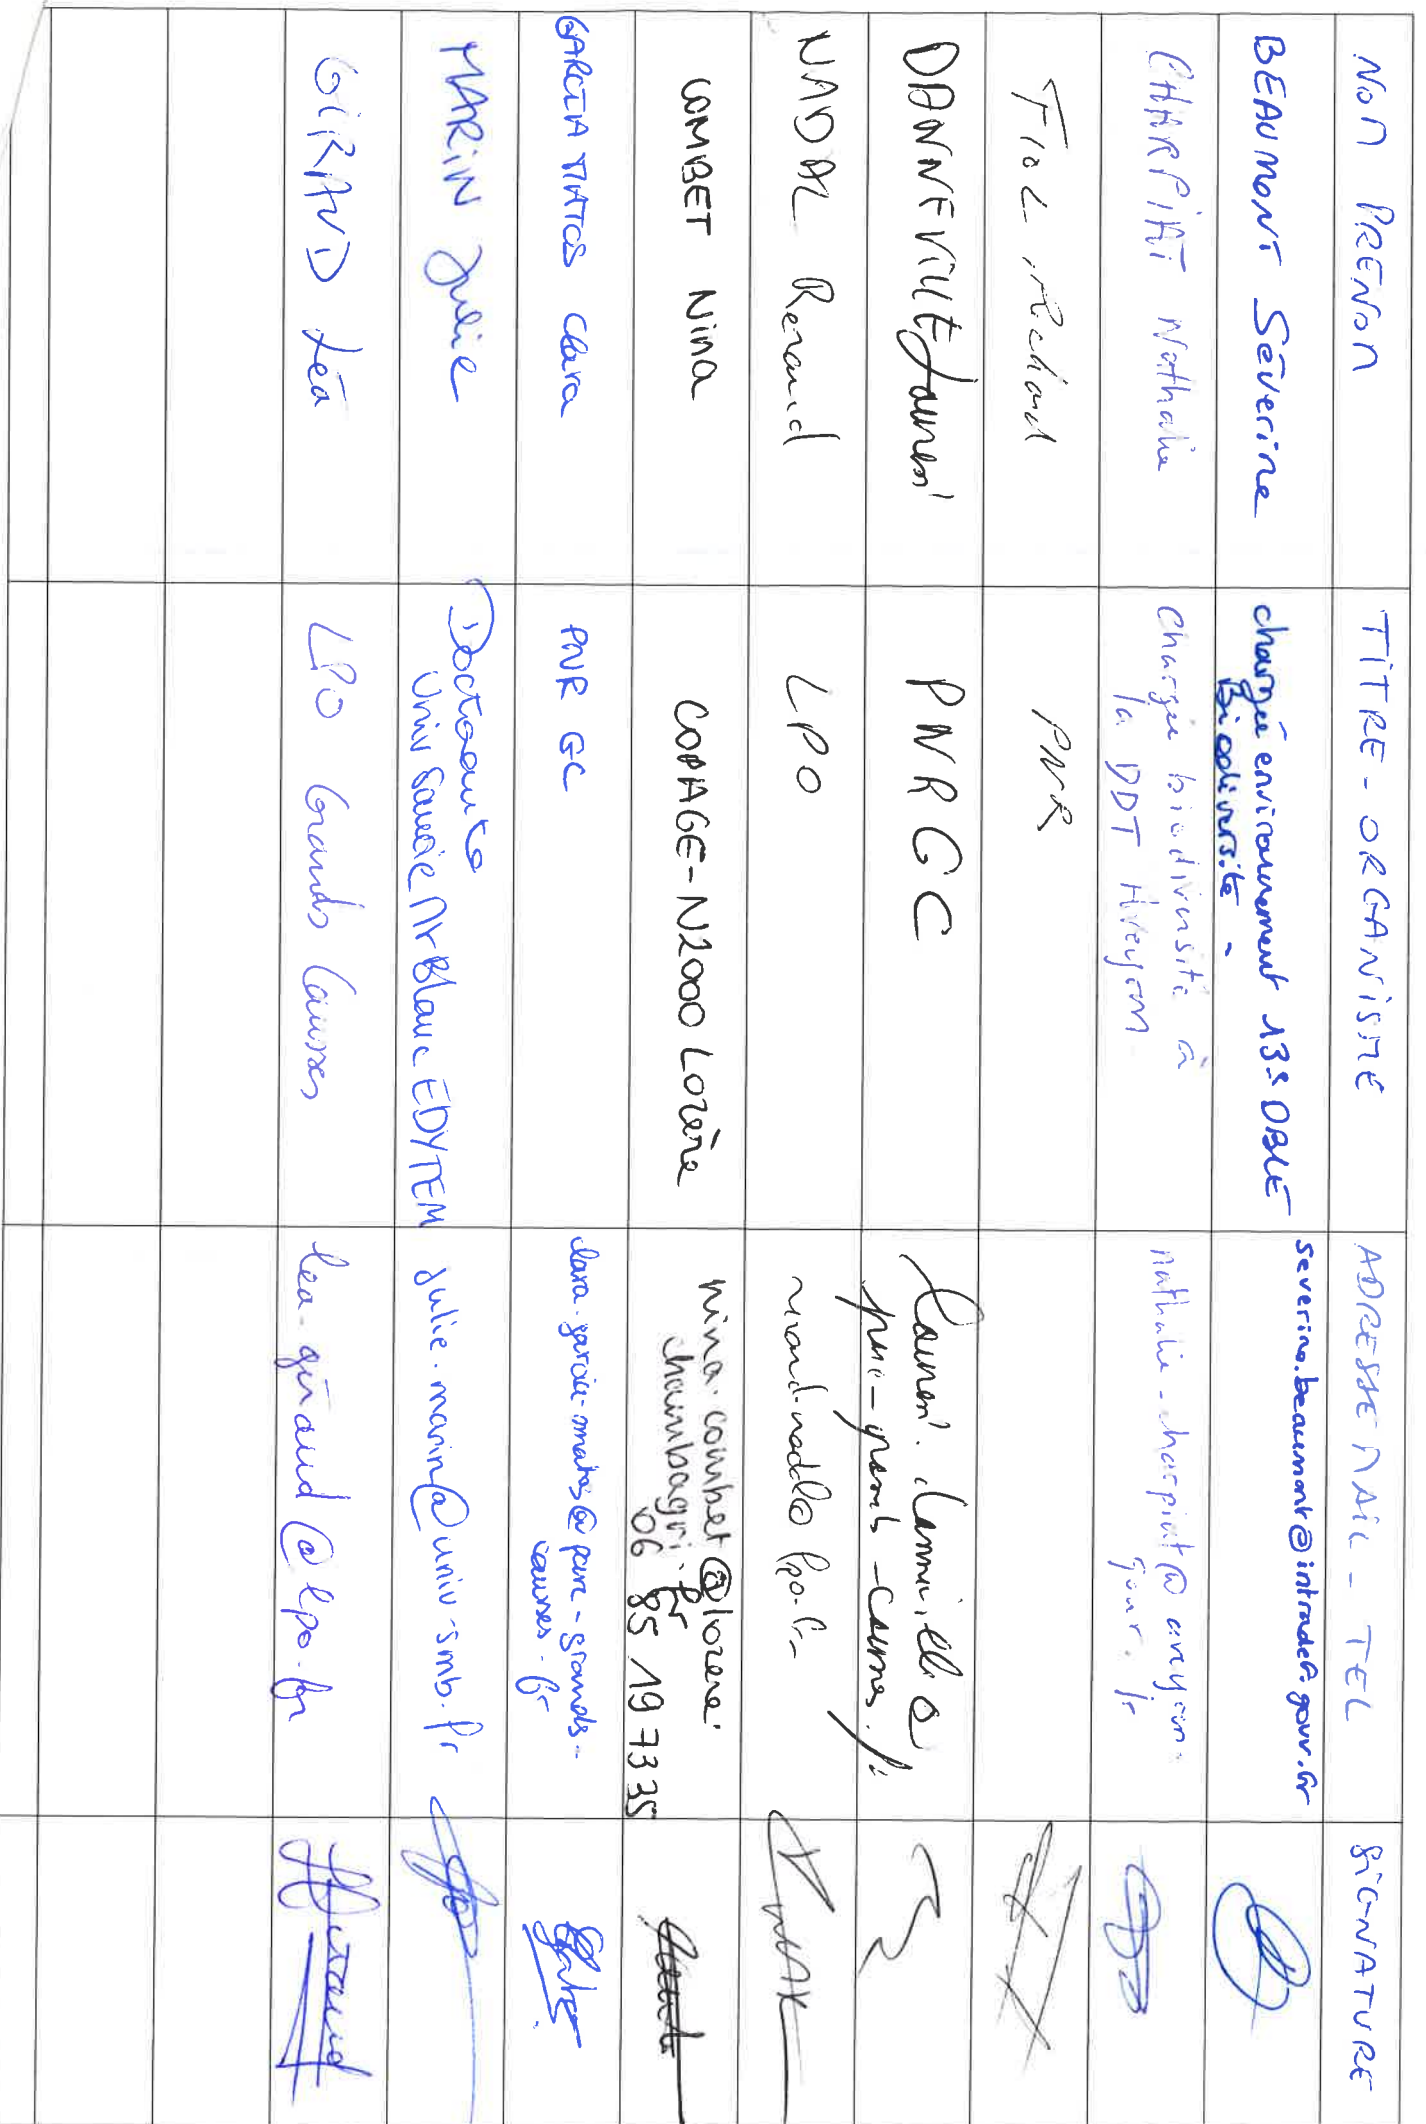 NOM PRENOM TITRE - ORGANISME ADRESSE MAIL - TEL SIGNATURE
BEAUMONT Séverine chargée environnement 13e DBLE severine.beaumont@intradef.gouv.fr
Biodiversité -
CHARPIAT Nathalie Chargée biodiversité à nathalie-charpiat@aveyron.
la DDT Aveyron gouv.fr
FIOL Richard PNR
DANNEVILLE Laurent PNRGC laurent.danneville@
parc-grands-causses.fr
NADAL Renaud LPO renaud.nadal@lpo.fr
COMBET Nina COPAGE-N2000 Lozère nina.combet@lozere.
chambagri.fr
06 85 19 73 35
GARCIA MATOS Clara PNR GC clara.garcia-matos@parc-grands-
causses.fr
MARiN Julie Doctorante julie.marin@univ-smb.fr
Univ Savoie Mt Blanc EDYTEM
GiRAUD Léa LPO Grands Causses lea.giraud@lpo.fr